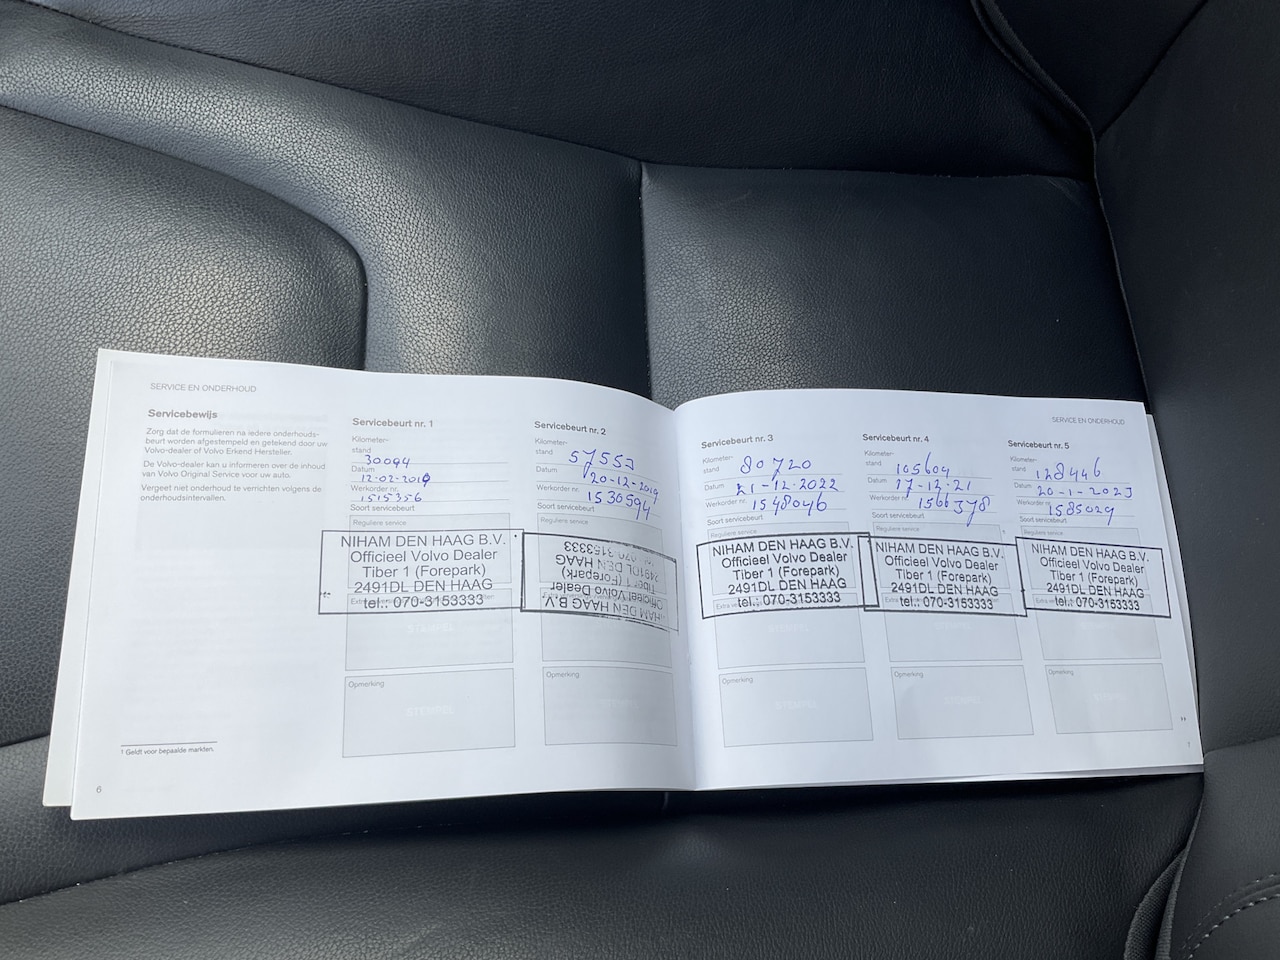 SERVICE EN ONDERHOUD
Servicebewijs
Zorg dat de formulieren na iedere onderhouds-
beurt worden afgestempeld en getekend door uw
Volvo-dealer of Volvo Erkend Hersteller.
De Volvo-dealer kan u informeren over de inhoud
van Volvo Original Service voor uw auto.
Vergeet niet onderhoud te verrichten volgens de
onderhoudsintervallen.
1 Geldt voor bepaalde markten.
6
Servicebeurt nr. 1
Kilometer-
stand
30094
Datum
12-02-2019
Werkorder nr.
1515356
Soort servicebeurt
Reguliere service
NIHAM DEN HAAG B.V.
Officieel Volvo Dealer
Tiber 1 (Forepark)
2491DL DEN HAAG
tel.: 070-3153333
STEMPEL
Opmerking
STEMPEL
Servicebeurt nr. 2
Kilometer-
stand
57553
Datum
20-12-2019
Werkorder nr.
1530594
Soort servicebeurt
Reguliere service
NIHAM DEN HAAG B.V.
Officieel Volvo Dealer
Tiber 1 (Forepark)
2491DL DEN HAAG
070-3153333
Opmerking
SERVICE EN ONDERHOUD
Servicebeurt nr. 3
Kilometer-
stand
80720
Datum
21-12-2022
Werkorder nr.
1548046
Soort servicebeurt
Reguliere service
NIHAM DEN HAAG B.V.
Officieel Volvo Dealer
Tiber 1 (Forepark)
2491DL DEN HAAG
tel.: 070-3153333
STEMPEL
Opmerking
STEMPEL
Servicebeurt nr. 4
Kilometer-
stand
105604
Datum
17-12-21
Werkorder nr.
1566378
Soort servicebeurt
Reguliere service
NIHAM DEN HAAG B.V.
Officieel Volvo Dealer
Tiber 1 (Forepark)
2491DL DEN HAAG
tel.: 070-3153333
STEMPEL
Opmerking
STEMPEL
Servicebeurt nr. 5
Kilometer-
stand
128446
Datum
20-1-2023
Werkorder nr.
1585029
Soort servicebeurt
NIHAM DEN HAAG B.V.
Officieel Volvo Dealer
Tiber 1 (Forepark)
2491DL DEN HAAG
tel.: 070-3153333
STEMPEL
Opmerking
STEMPEL